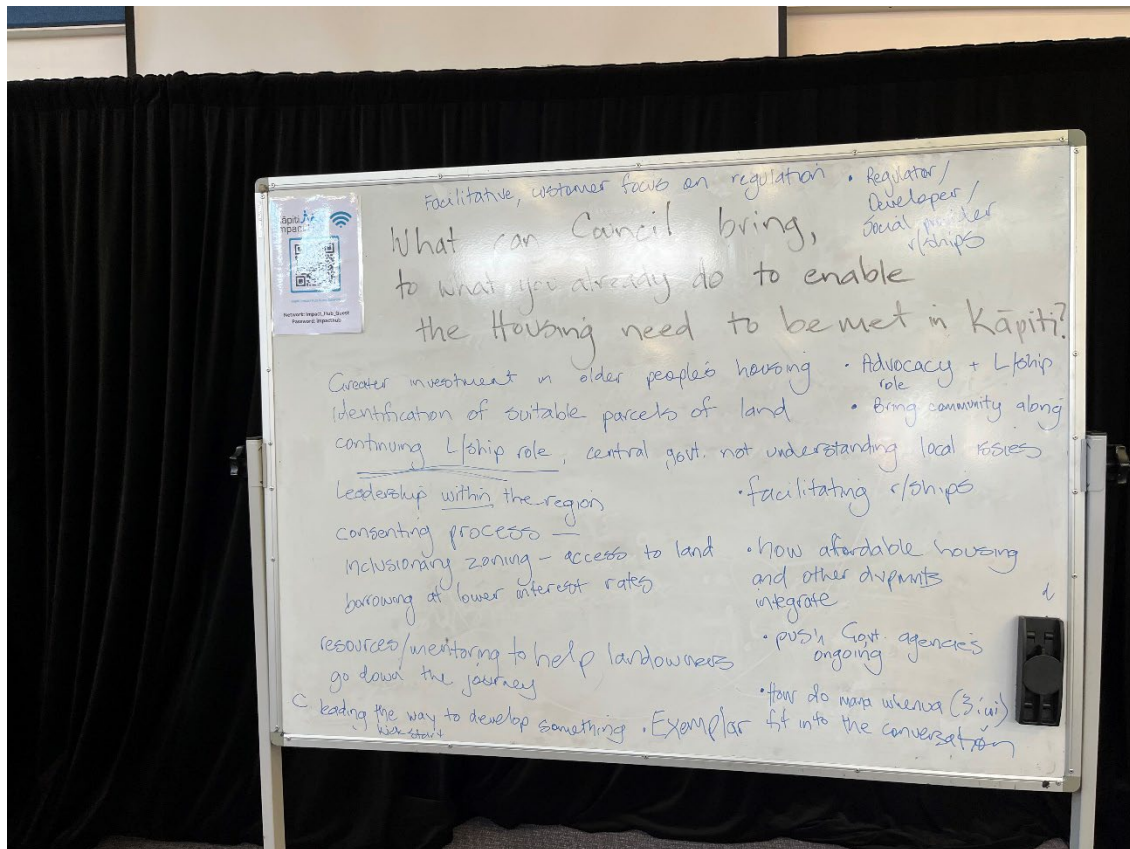 Facilitative, customer focus on regulation
• Regulator/
Developer/
Social provider
r/ships
Kāpiti
Impact
Network: Impact_Hub_Guest
Password: impacthub
What can Council bring,
to what you already do to enable
the Housing need to be met in Kāpiti?
Greater investment in older people's housing
identification of suitable parcels of land
continuing L/ship role, central govt. not understanding local issies
Leadership within the region
consenting process —
inclusionary zoning – access to land
borrowing at lower interest rates
resources/mentoring to help landowners
go down the journey
C leading the way to develop something • Exemplar
kick start
• Advocacy + L/ship
role
• Bring community along
• facilitating r/ships
• how affordable housing
and other dvpmnts
integrate
• push Govt. agencies
ongoing
• How do mana whenua (3 iwi)
fit into the conversation